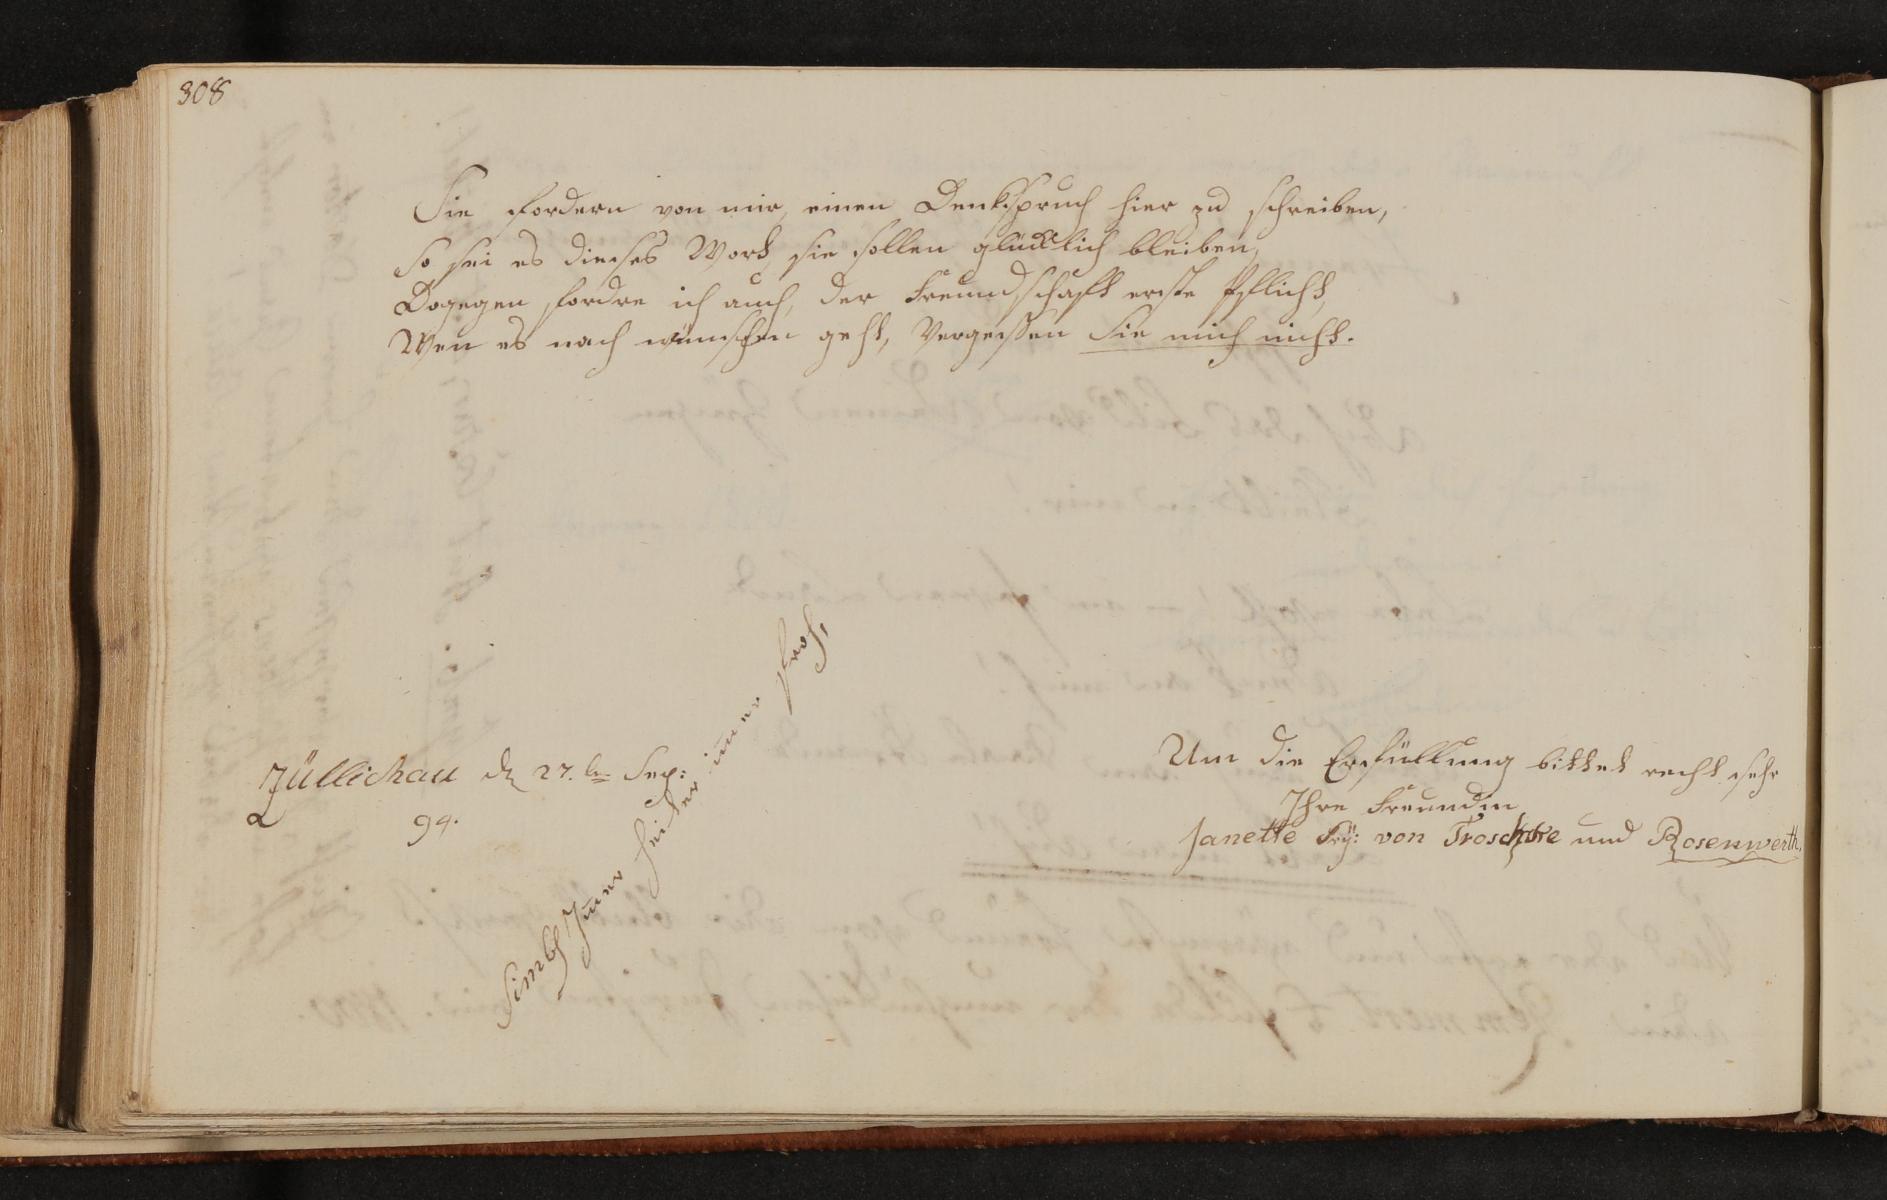 308
Sie fordern von mir, einen Denkspruch hier zu schreiben,
So sei es dieses Wort, sie sollen glücklich bleiben,
Dagegen fordre ich auch, der Freundschaft erste Pflicht,
Wen es nach wünschen geht, Vergeßen Sie mich nicht.
Züllichau d 27. Sep:
94.
Simb: Im̄er heiter im̄er froh,
Um die Erfüllung bittet recht sehr
Ihre Freundin
Janette Frÿ: von Troschke und Rosenwerth.